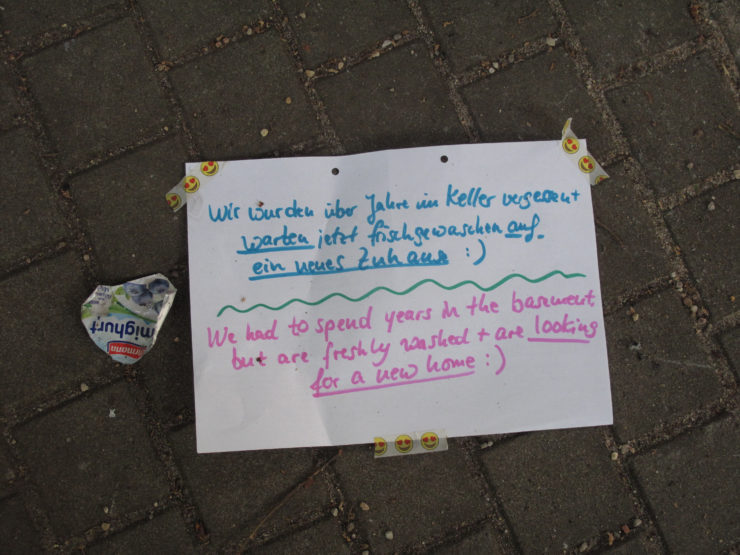 Wir wurden über Jahre im Keller vergessen +
warten jetzt frischgewaschen auf
ein neues Zuhause :)
We had to spend years in the basement
but are freshly washed + are looking
for a new home :)
mighurt